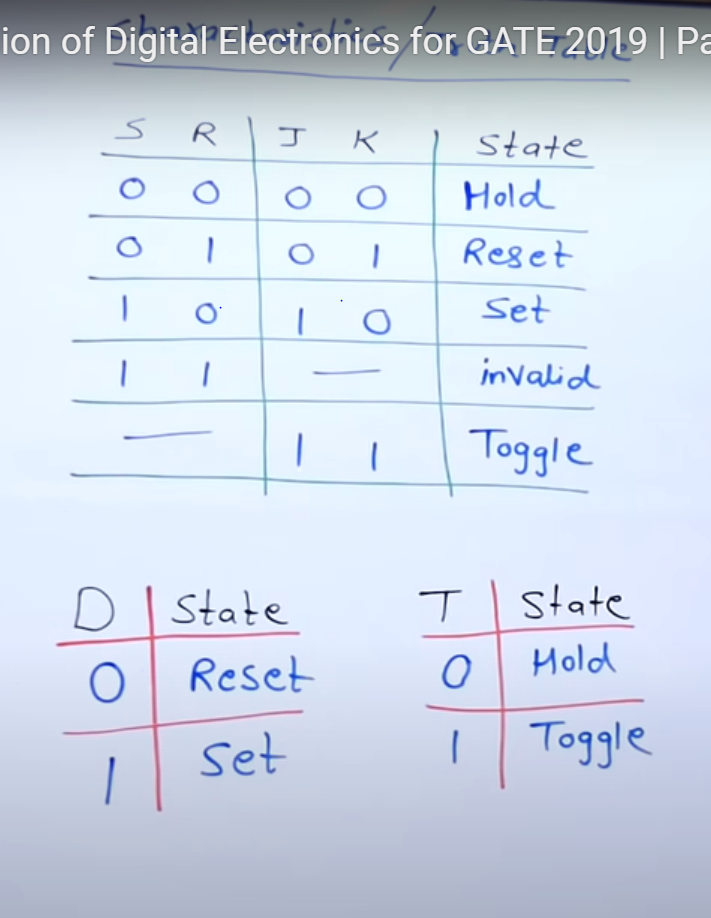 ion of Digital Electronics for GATE 2019 | Pa
Characteristics / Truth Table
S R J K State
0 0 0 0 Hold
0 1 0 1 Reset
1 0 1 0 Set
1 1 — invalid
— 1 1 Toggle
D State
0 Reset
1 Set
T State
0 Hold
1 Toggle